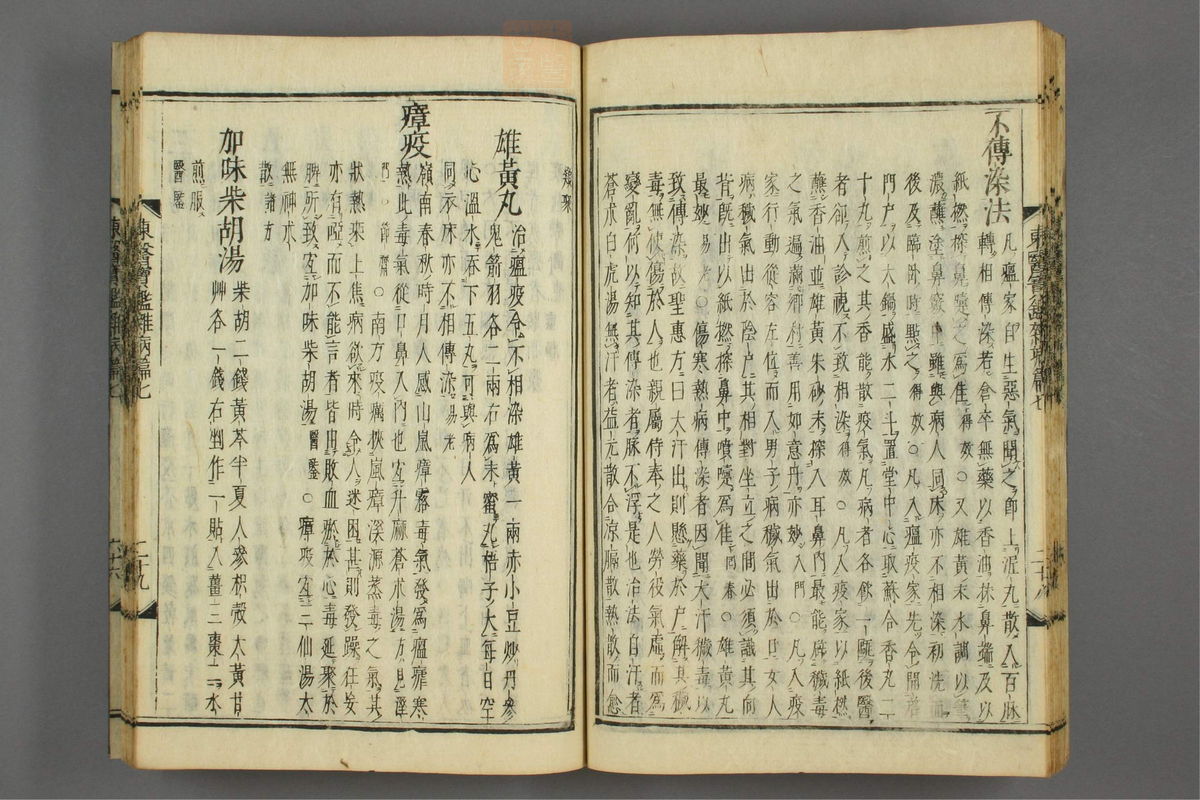 不傳染法
凡瘟家自生惡氣聞之即上泥丸散入百脉
轉相傳染若倉卒無藥以香油抹鼻端及以
紙撚探鼻嚏之爲佳得效○又雄黃末水調以筆
濃蘸塗鼻竅中雖與病人同床亦不相染初洗面
後及臨卧時點之得效○凡入瘟疫家先令開啓
門戶以大鍋盛水二斗置堂中心取蘇合香丸二
十丸煎之其香能散疫氣凡病者各飲一甌後醫
者却入診視不致相染得效○凡入疫家以紙撚
蘸香油並雄黃朱砂末探入耳鼻內最能辟穢毒
之氣過滿鄉村善用如意丹亦妙入門○凡入疫
家行動從容左位而入男子病穢氣出於口女人
病穢氣出於陰戶其相對坐立之間必須識其向
背既出以紙撚探鼻中噴嚏爲佳回春○雄黃丸
最妙易老○傷寒熱病傳染者因聞大汗穢毒以
致傳染故聖惠方曰大汗出則懸藥於戶解其穢
毒無使傷於人也親屬侍奉之人勞役氣虛而爲
變亂何以知其傳染者脉不浮是也治法自汗者
蒼朮白虎湯無汗者益元散合凉膈散熱散而愈
東醫寶鑑雜病篇七
二十八
類聚
雄黃丸
治瘟疫令不相染雄黃一兩赤小豆炒丹參
鬼箭羽各二兩右爲末蜜丸梧子大每日空
心溫水吞下五丸可與病人
同衣床亦不相傳染易老
瘴疫
嶺南春秋時月人感山嵐瘴霧毒氣發爲瘟瘧寒
熱此毒氣從口鼻入內也宜升麻蒼朮湯方見瘧
門
○南方疫癘挾嵐瘴溪源蒸毒之氣其
狀熱乘上焦病欲來時令人迷困甚則發躁狂妄
亦有瘂而不能言者皆由敗血瘀於心毒延聚於
脾所致宜加味柴胡湯醫鑑○瘴疫宜三仙湯太
無神朮
散諸方
加味柴胡湯
柴胡二錢黃芩半夏人參枳殼大黃甘
艸各一錢右剉作一貼入薑三棗二水
煎服
醫鑑
東醫寶鑑雜病篇七
二十九